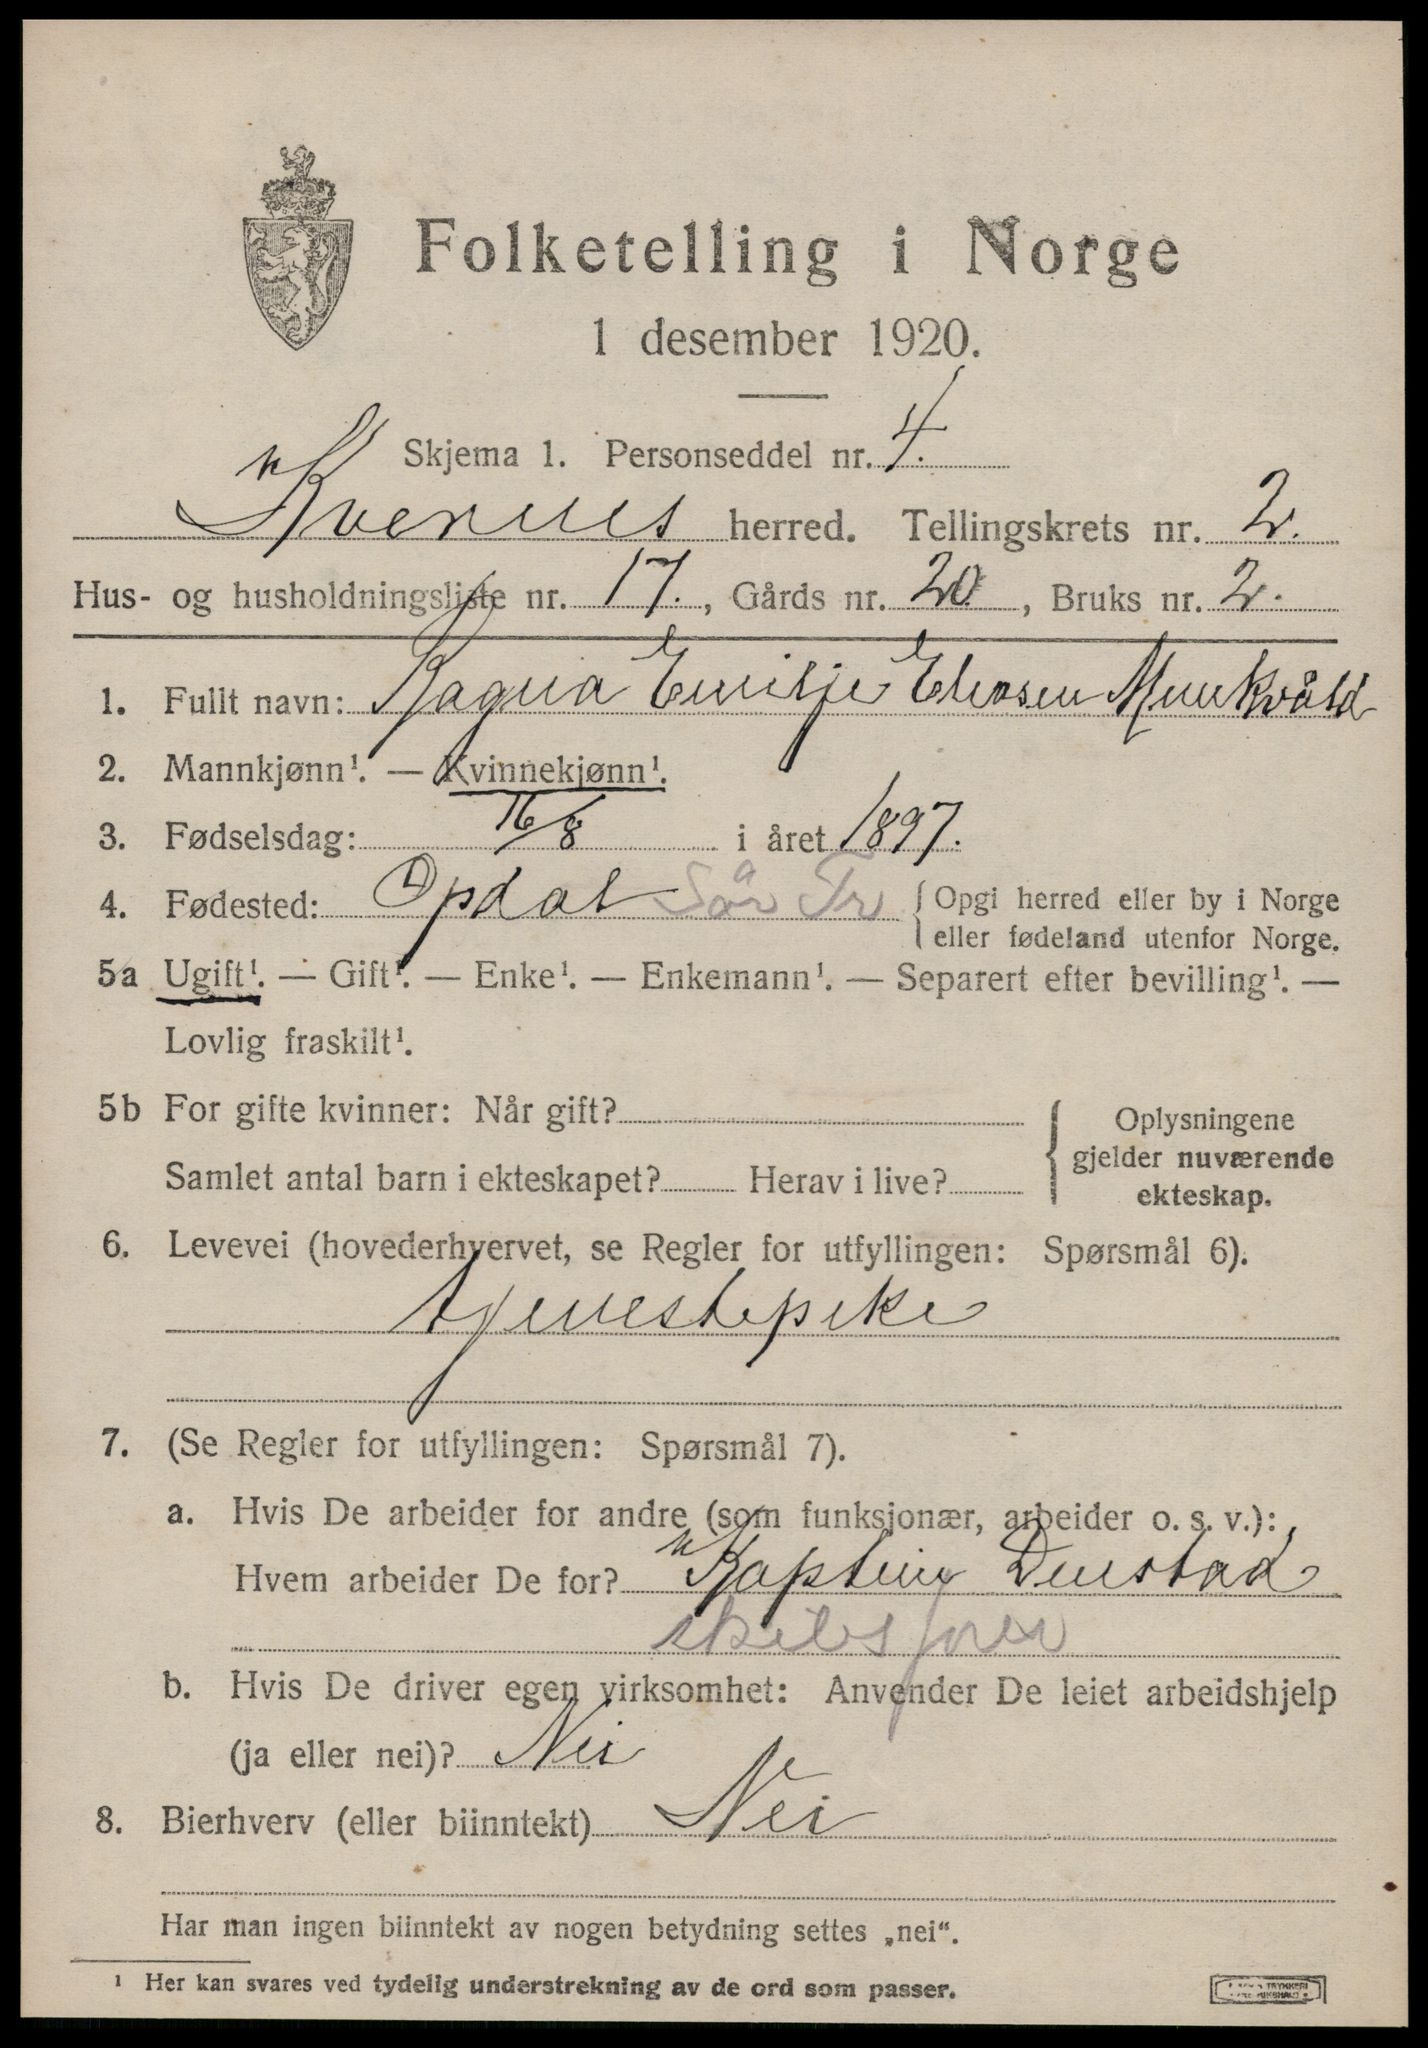 Folketelling i Norge
1 desember 1920.
Skjema 1. Personseddel nr. 4.
Kvernes herred. Tellingskrets nr. 2.
Hus- og husholdningsliste nr. 17., Gårds nr. 20, Bruks nr. 2.
1. Fullt navn: Ragna Emilje Munkvåld
2. Mannkjønn¹. — Kvinnekjønn¹.
3. Fødselsdag: 16/8 i året 1897.
4. Fødested: Opdal Sør Tr { Opgi herred eller by i Norge
eller fødeland utenfor Norge.
5a Ugift¹. — Gift¹. — Enke¹. — Enkemann¹. — Separert efter bevilling¹. —
Lovlig fraskilt¹.
5b For gifte kvinner: Når gift?
Samlet antal barn i ekteskapet? Herav i live?
{ Oplysningene
gjelder nuværende
ekteskap.
6. Levevei (hovederhvervet, se Regler for utfyllingen: Spørsmål 6).
tjenestepike
7. (Se Regler for utfyllingen: Spørsmål 7).
a. Hvis De arbeider for andre (som funksjonær, arbeider o. s. v.):
Hvem arbeider De for? Kaptein
skibsfører
b. Hvis De driver egen virksomhet: Anvender De leiet arbeidshjelp
(ja eller nei)? Nei
8. Bierhverv (eller biinntekt) Nei
Har man ingen biinntekt av nogen betydning settes „nei“.
¹ Her kan svares ved tydelig understrekning av de ord som passer.